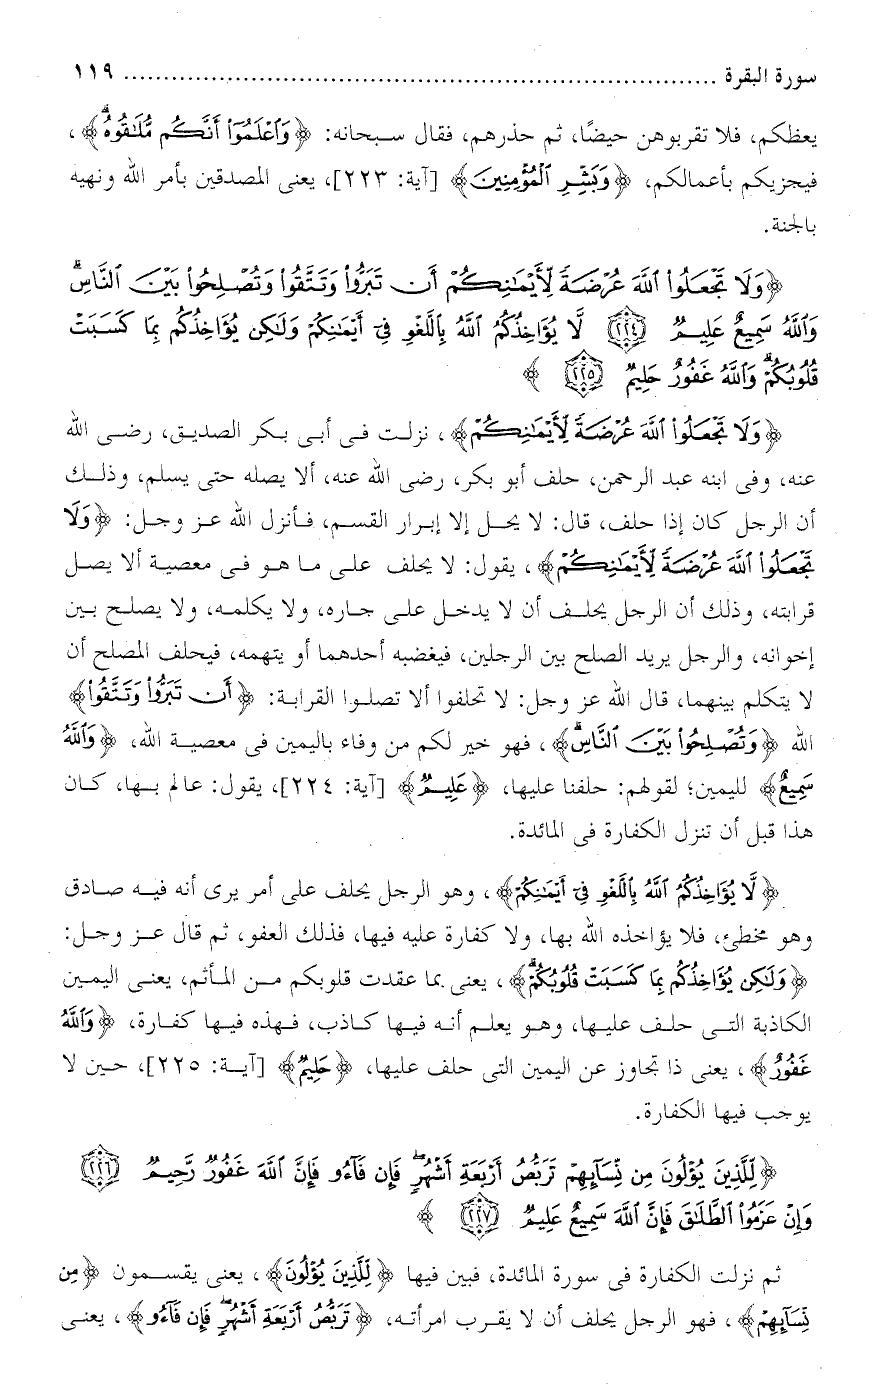 سورة البقرة ........................................................................... ١١٩
يعظكم، فلا تقربوهن حيضًا، ثم حذرهم، فقال سبحانه: ﴿وَٱعۡلَمُوٓاْ أَنَّكُم مُّلَٰقُوهُۗ﴾،
فيجزيكم بأعمالكم، ﴿وَبَشِّرِ ٱلۡمُؤۡمِنِينَ﴾ [آية: ٢٢٣]، يعنى المصدقين بأمر الله ونهيه
بالجنة.
﴿وَلَا تَجۡعَلُواْ ٱللَّهَ عُرۡضَةٗ لِّأَيۡمَٰنِكُمۡ أَن تَبَرُّواْ وَتَتَّقُواْ وَتُصۡلِحُواْ بَيۡنَ ٱلنَّاسِۚ
وَٱللَّهُ سَمِيعٌ عَلِيمٞ ٢٢٤ لَّا يُؤَاخِذُكُمُ ٱللَّهُ بِٱللَّغۡوِ فِيٓ أَيۡمَٰنِكُمۡ وَلَٰكِن يُؤَاخِذُكُم بِمَا كَسَبَتۡ
قُلُوبُكُمۡۗ وَٱللَّهُ غَفُورٌ حَلِيمٞ ٢٢٥ ﴾
﴿وَلَا تَجۡعَلُواْ ٱللَّهَ عُرۡضَةٗ لِّأَيۡمَٰنِكُمۡ﴾، نزلت فى أبى بكر الصديق، رضى الله
عنه، وفى ابنه عبد الرحمن، حلف أبو بكر، رضى الله عنه، ألا يصله حتى يسلم، وذلك
أن الرجل كان إذا حلف، قال: لا يحل إلا إبرار القسم، فأنزل الله عز وجل: ﴿وَلَا
تَجۡعَلُواْ ٱللَّهَ عُرۡضَةٗ لِّأَيۡمَٰنِكُمۡ﴾، يقول: لا يحلف على ما هو فى معصية ألا يصل
قرابته، وذلك أن الرجل يحلف أن لا يدخل على جاره، ولا يكلمه، ولا يصلح بين
إخوانه، والرجل يريد الصلح بين الرجلين، فيغضبه أحدهما أو يتهمه، فيحلف المصلح أن
لا يتكلم بينهما، قال الله عز وجل: لا تحلفوا ألا تصلوا القرابة: ﴿أَن تَبَرُّواْ وَتَتَّقُواْ﴾
الله ﴿وَتُصۡلِحُواْ بَيۡنَ ٱلنَّاسِۚ﴾، فهو خير لكم من وفاء باليمين فى معصية الله، ﴿وَٱللَّهُ
سَمِيعٌ﴾ لليمين؛ لقولهم: حلفنا عليها، ﴿عَلِيمٞ﴾ [آية: ٢٢٤]، يقول: عالم بها، كان
هذا قبل أن تنزل الكفارة فى المائدة.
﴿لَّا يُؤَاخِذُكُمُ ٱللَّهُ بِٱللَّغۡوِ فِيٓ أَيۡمَٰنِكُمۡ﴾، وهو الرجل يحلف على أمر يرى أنه فيه صادق
وهو مخطئ، فلا يؤاخذه الله بها، ولا كفارة عليه فيها، فذلك العفو، ثم قال عز وجل:
﴿وَلَٰكِن يُؤَاخِذُكُم بِمَا كَسَبَتۡ قُلُوبُكُمۡۗ﴾، يعنى بما عقدت قلوبكم من المأثم، يعنى اليمين
الكاذبة التى حلف عليها، وهو يعلم أنه فيها كاذب، فهذه فيها كفارة، ﴿وَٱللَّهُ
غَفُورٌ﴾، يعنى ذا تجاوز عن اليمين التى حلف عليها، ﴿حَلِيمٞ﴾ [آية: ٢٢٥]، حين لا
يوجب فيها الكفارة.
﴿لِّلَّذِينَ يُؤۡلُونَ مِن نِّسَآئِهِمۡ تَرَبُّصُ أَرۡبَعَةِ أَشۡهُرٖۖ فَإِن فَآءُو فَإِنَّ ٱللَّهَ غَفُورٞ رَّحِيمٞ ٢٢٦
وَإِنۡ عَزَمُواْ ٱلطَّلَٰقَ فَإِنَّ ٱللَّهَ سَمِيعٌ عَلِيمٞ ٢٢٧ ﴾
ثم نزلت الكفارة فى سورة المائدة، فبين فيها ﴿لِّلَّذِينَ يُؤۡلُونَ﴾، يعنى يقسمون ﴿مِن
نِّسَآئِهِمۡ﴾، فهو الرجل يحلف أن لا يقرب امرأته، ﴿تَرَبُّصُ أَرۡبَعَةِ أَشۡهُرٖۖ فَإِن فَآءُو﴾، يعنى